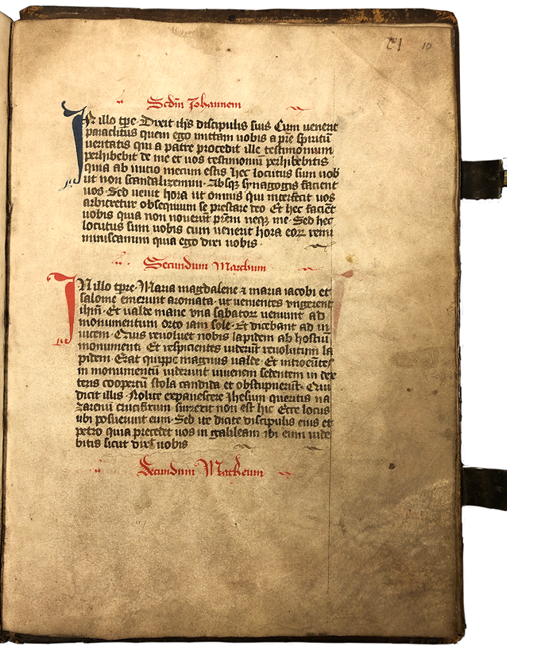 CI 10
Scdm Johannem
In illo tpe Dixit ihs discipulis suis Cum uenerit
paraclitus quem ego mittam uobis a pre spiritum
ueritatis qui a patre procedit ille testimonium
perhibebit de me et uos testimonium perhibebitis
quia ab inicio mecum estis hec locutus sum uob
ut non scandalizemini Absq synagogis facient
uos Sed uenit hora ut omnis qui interficit uos
arbitretur obsequium se prestare deo Et hec faciet
uobis quia non nouerut prem neq me Sed hec
locutus sum uobis cum uenerit hora eor remi
miniscamini quia ego dixi uobis
Secundum Marchum
IN illo tpre Maria magdalene z maria iacobi et
salome emerunt aromata ut uenientes ungerent
ihm Et ualde mane una sabator ueniunt ad
monumentum orto iam sole Et dicebant ad in
uicem Quis reuoluet nobis lapidem ab hostio
monumenti Et respicientes uiderut reuolutum la
pidem Erat quippe magnus ualde Et introeutes
in monumentu uiderunt iuuenem sedentem in dex
teris coopertu stola candida et obstupuerut Qui
dicit illis Nolite expauescere Jhesum queritis na
zarenu crucifixum surrexit non est hic Ecce locus
ubi posuerunt eum Sed ite dicite discipulis eius et
petro quia precedet uos in galileam ibi eum uide
bitis sicut dixit uobis
Secundum Matheum